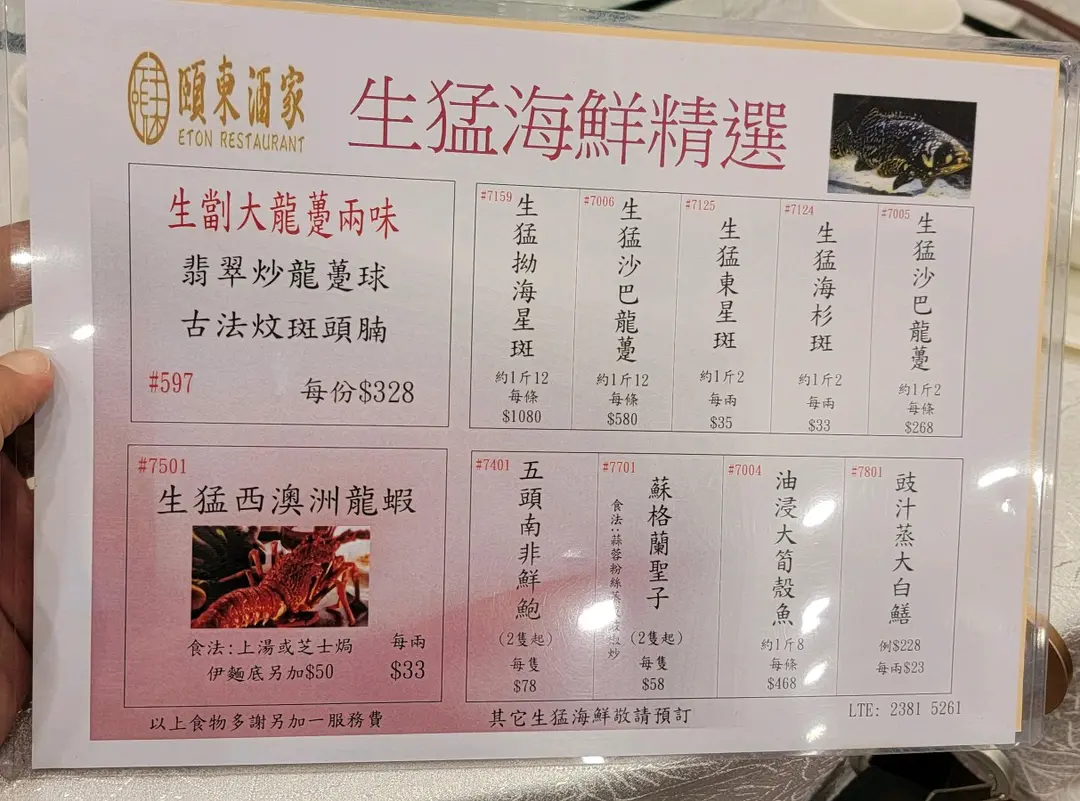 頤東酒家
ETON RESTAURANT
生猛海鮮精選
生劏大龍躉兩味
翡翠炒龍躉球
古法炆斑頭腩
#597
每份$328
#7159
生猛拗海星斑
約1斤12
每條
$1080
#7006
生猛沙巴龍躉
約1斤12
每條
$580
#7125
生猛東星斑
約1斤2
每兩
$35
#7124
生猛海杉斑
約1斤2
每兩
$33
#7005
生猛沙巴龍躉
約1斤2
每條
$268
#7501
生猛西澳洲龍蝦
食法:上湯或芝士焗
伊麵底另加$50
每兩
$33
#7401
五頭南非鮮鮑
(2隻起)
每隻
$78
#7701
蘇格蘭聖子
食法:蒜蓉粉絲蒸
炒
(2隻起)
每隻
$58
#7004
油浸大筍殼魚
約1斤8
每條
$468
#7801
豉汁蒸大白鱔
例$228
每兩$23
以上食物多謝另加一服務費
其它生猛海鮮敬請預訂
LTE: 2381 5261